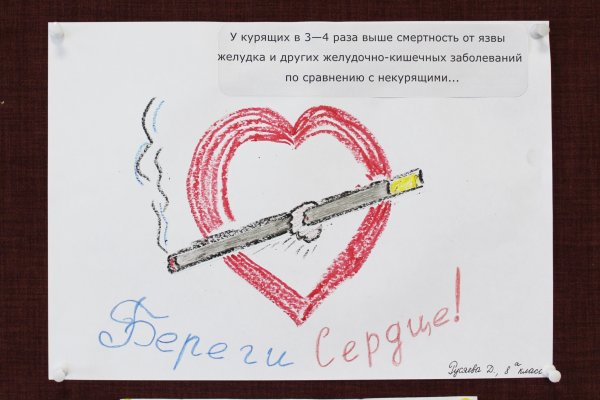 У курящих в 3—4 раза выше смертность от язвы
желудка и других желудочно-кишечных заболеваний
по сравнению с некурящими...
Береги Сердце!
Русяева Д., 8 "а" класс